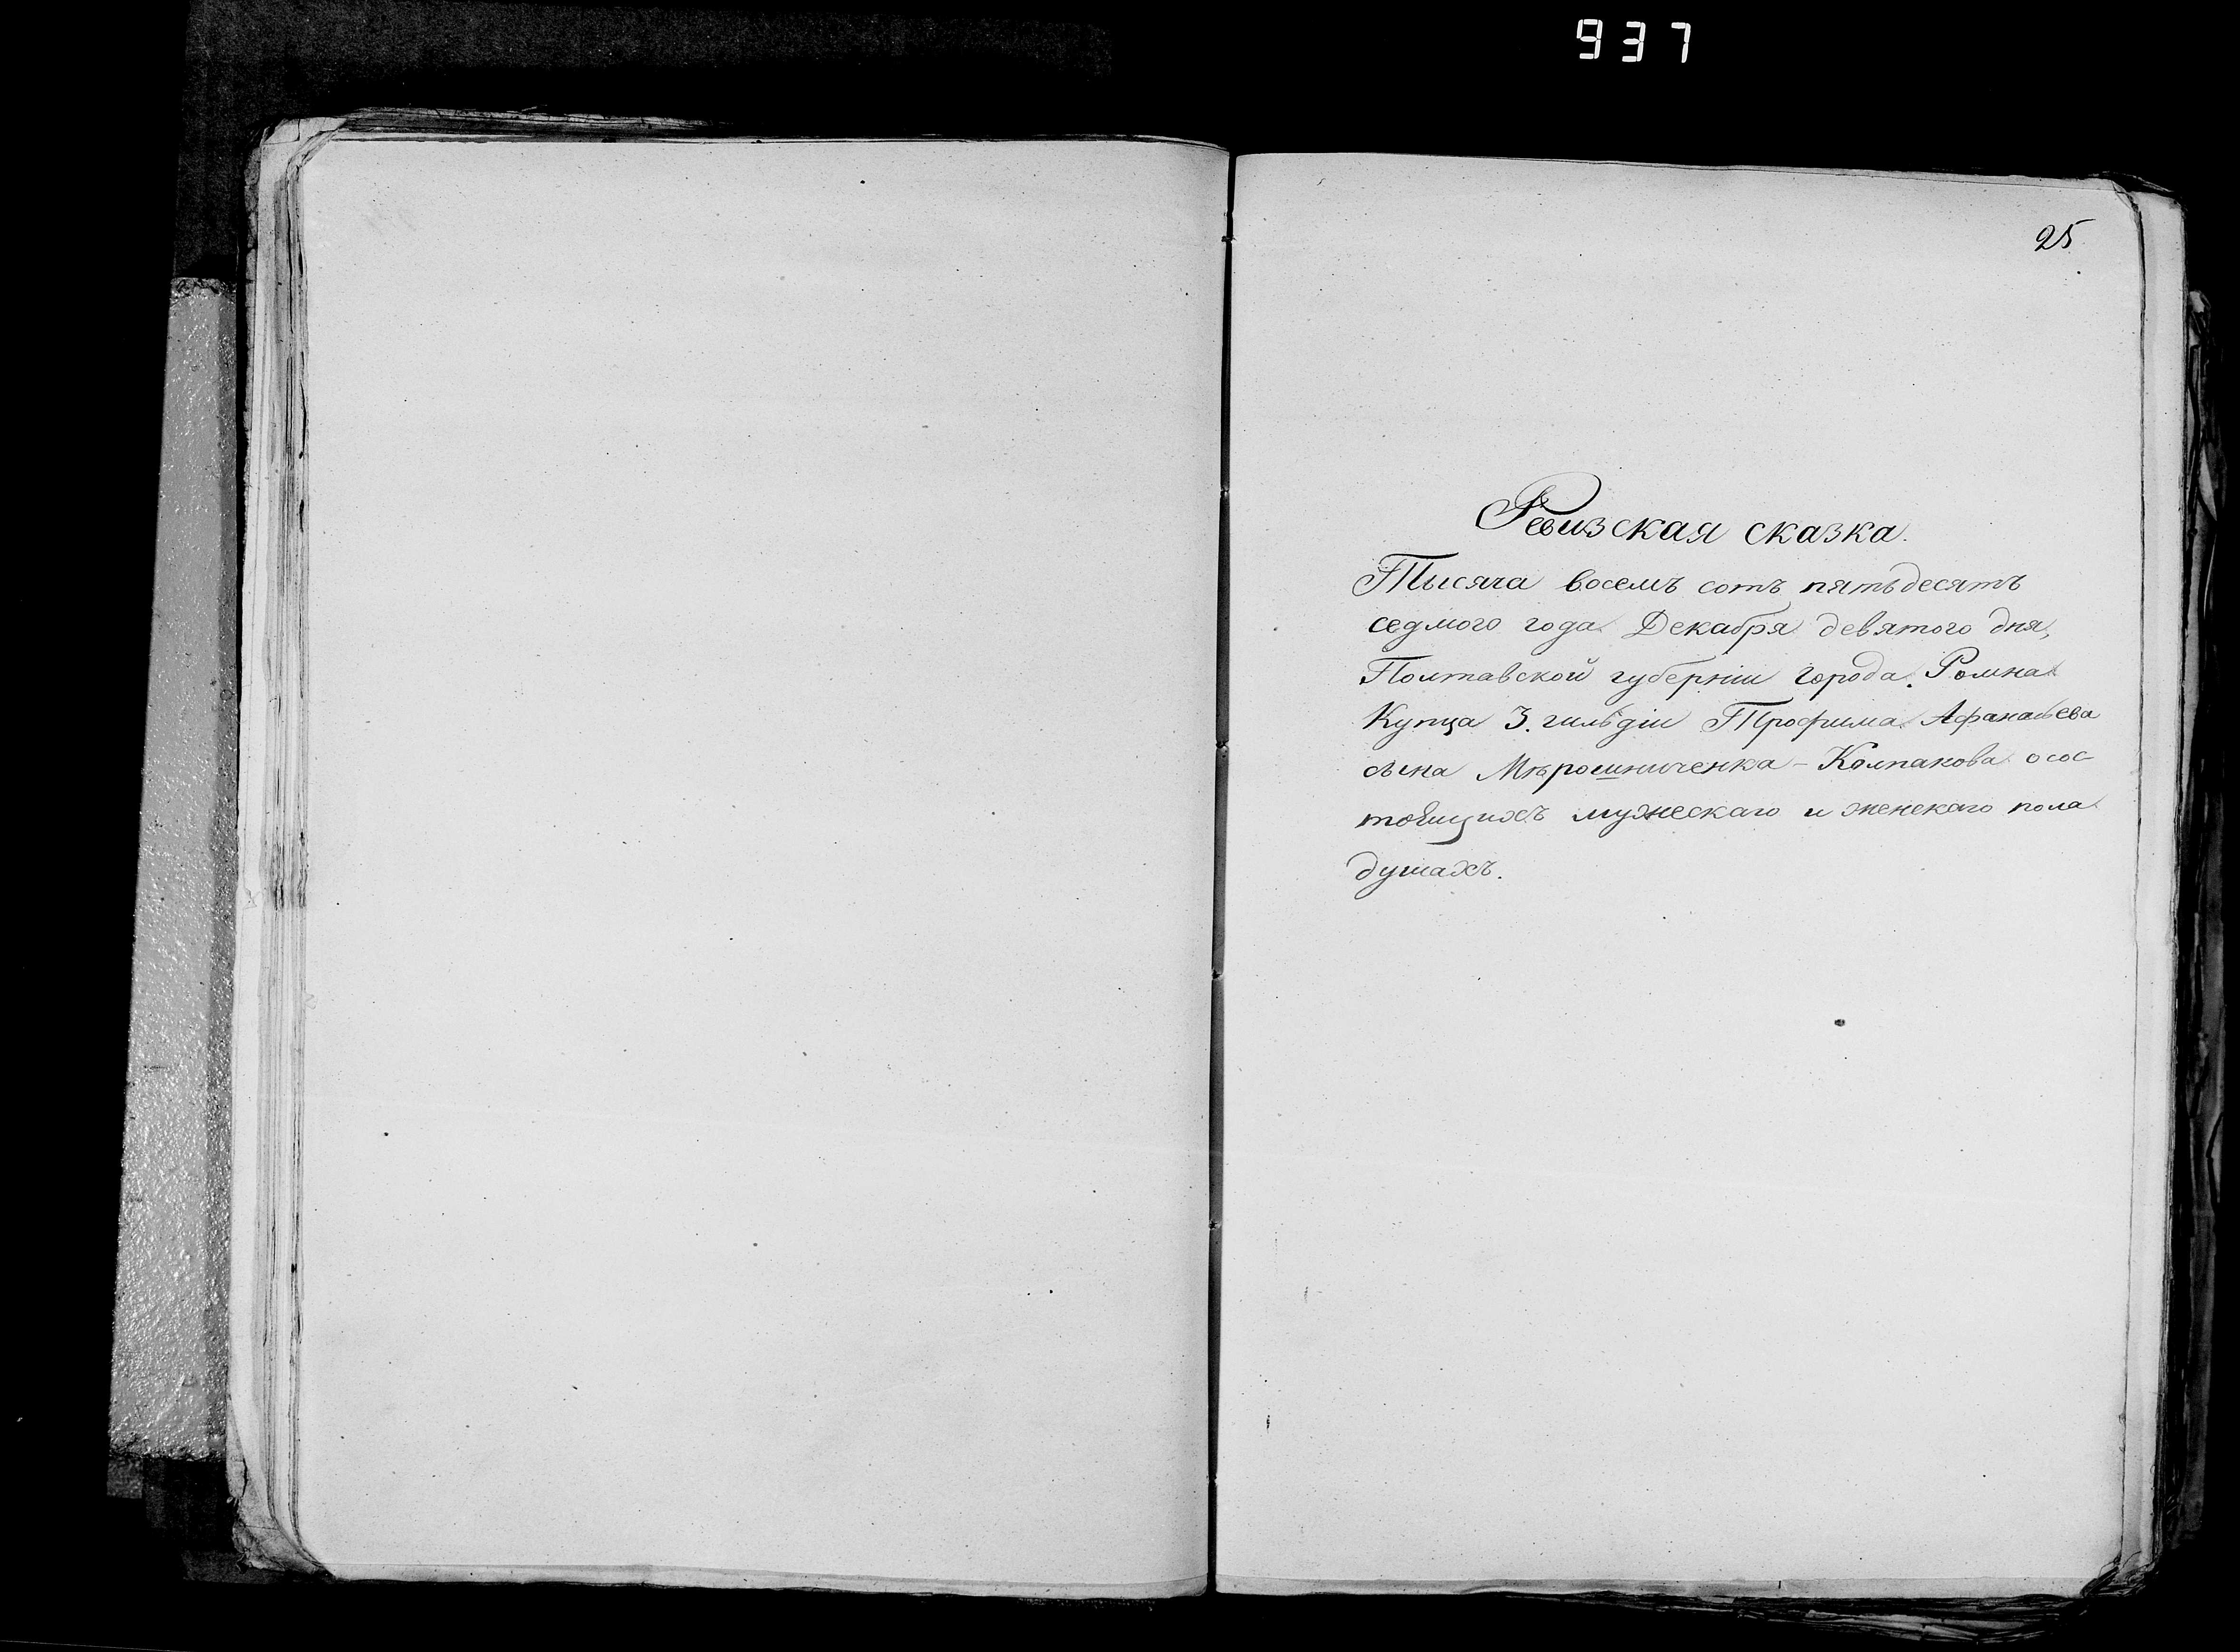 937
25
Ревизская сказка.
Тысяча восемъ сотъ пятьдесятъ
седмого года Декабря девятого дня,
Полтавской губерніи города Ромна
Купца 3. гильдіи Трофима Афанасьева
сына Мѣрошниченка-Колпакова о сос-
тоящихъ мужескаго и женскаго пола
душахъ.